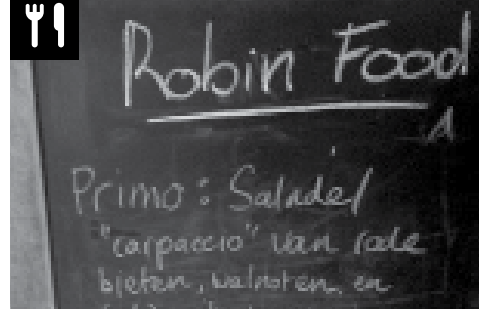 Robin Food
Primo: Salade
"carpaccio" van rode
bieten, walnoten, en